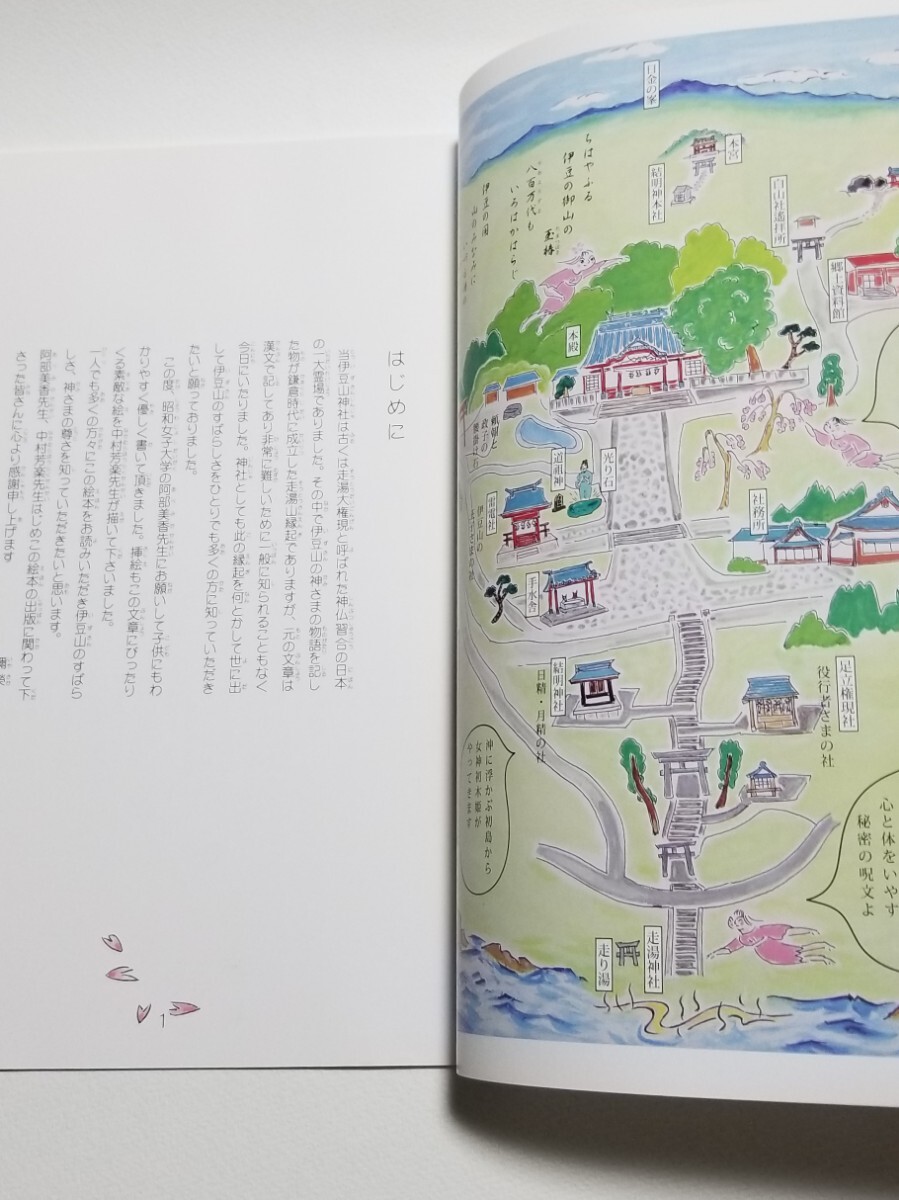 はじめに
当伊豆山神社は古くは走湯大権現と呼ばれた神仏習合の日本
の一大霊場でありました。その中で伊豆山の神さまの物語を記し
た物が鎌倉時代に成立した走湯山縁起でありますが、元の文章は
漢文で記してあり非常に難しいために一般に知られることもなく
今日にいたりました。神社としても此の縁起を何とかして世に出
して伊豆山のすばらしさをひとりでも多くの方に知っていただき
たいと願っておりました。
この度、昭和女子大学の阿部美香先生にお願いして子供にもわ
かりやすく優しく書いて頂きました。挿絵もこの文章にぴったり
くる素敵な絵を中村芳楽先生が描いて下さいました。
一人でも多くの方々にこの絵本をお読みいただき伊豆山のすばら
しさ、神さまの尊さを知っていただきたいと思います。
阿部美香先生、中村芳楽先生はじめこの絵本の出版に関わって下
さった皆さんに心より感謝申し上げます
1
日金の峯
本宮
結明神本社
白山社遙拝所
郷土資料館
ちはやふる
伊豆の御山の
玉椿
八百万代も
いろはかはらじ
伊豆の国
山のみなみに
本殿
頼朝と
政子の
腰掛け石
道祖神
光り石
雷電社
伊豆山の
社務所
手水舎
結明神社
日精・月精の社
足立権現社
役行者さまの社
沖に浮かぶ初島から
女神初木姫が
やってきます
心と体をいやす
秘密の呪文よ
走湯神社
走り湯